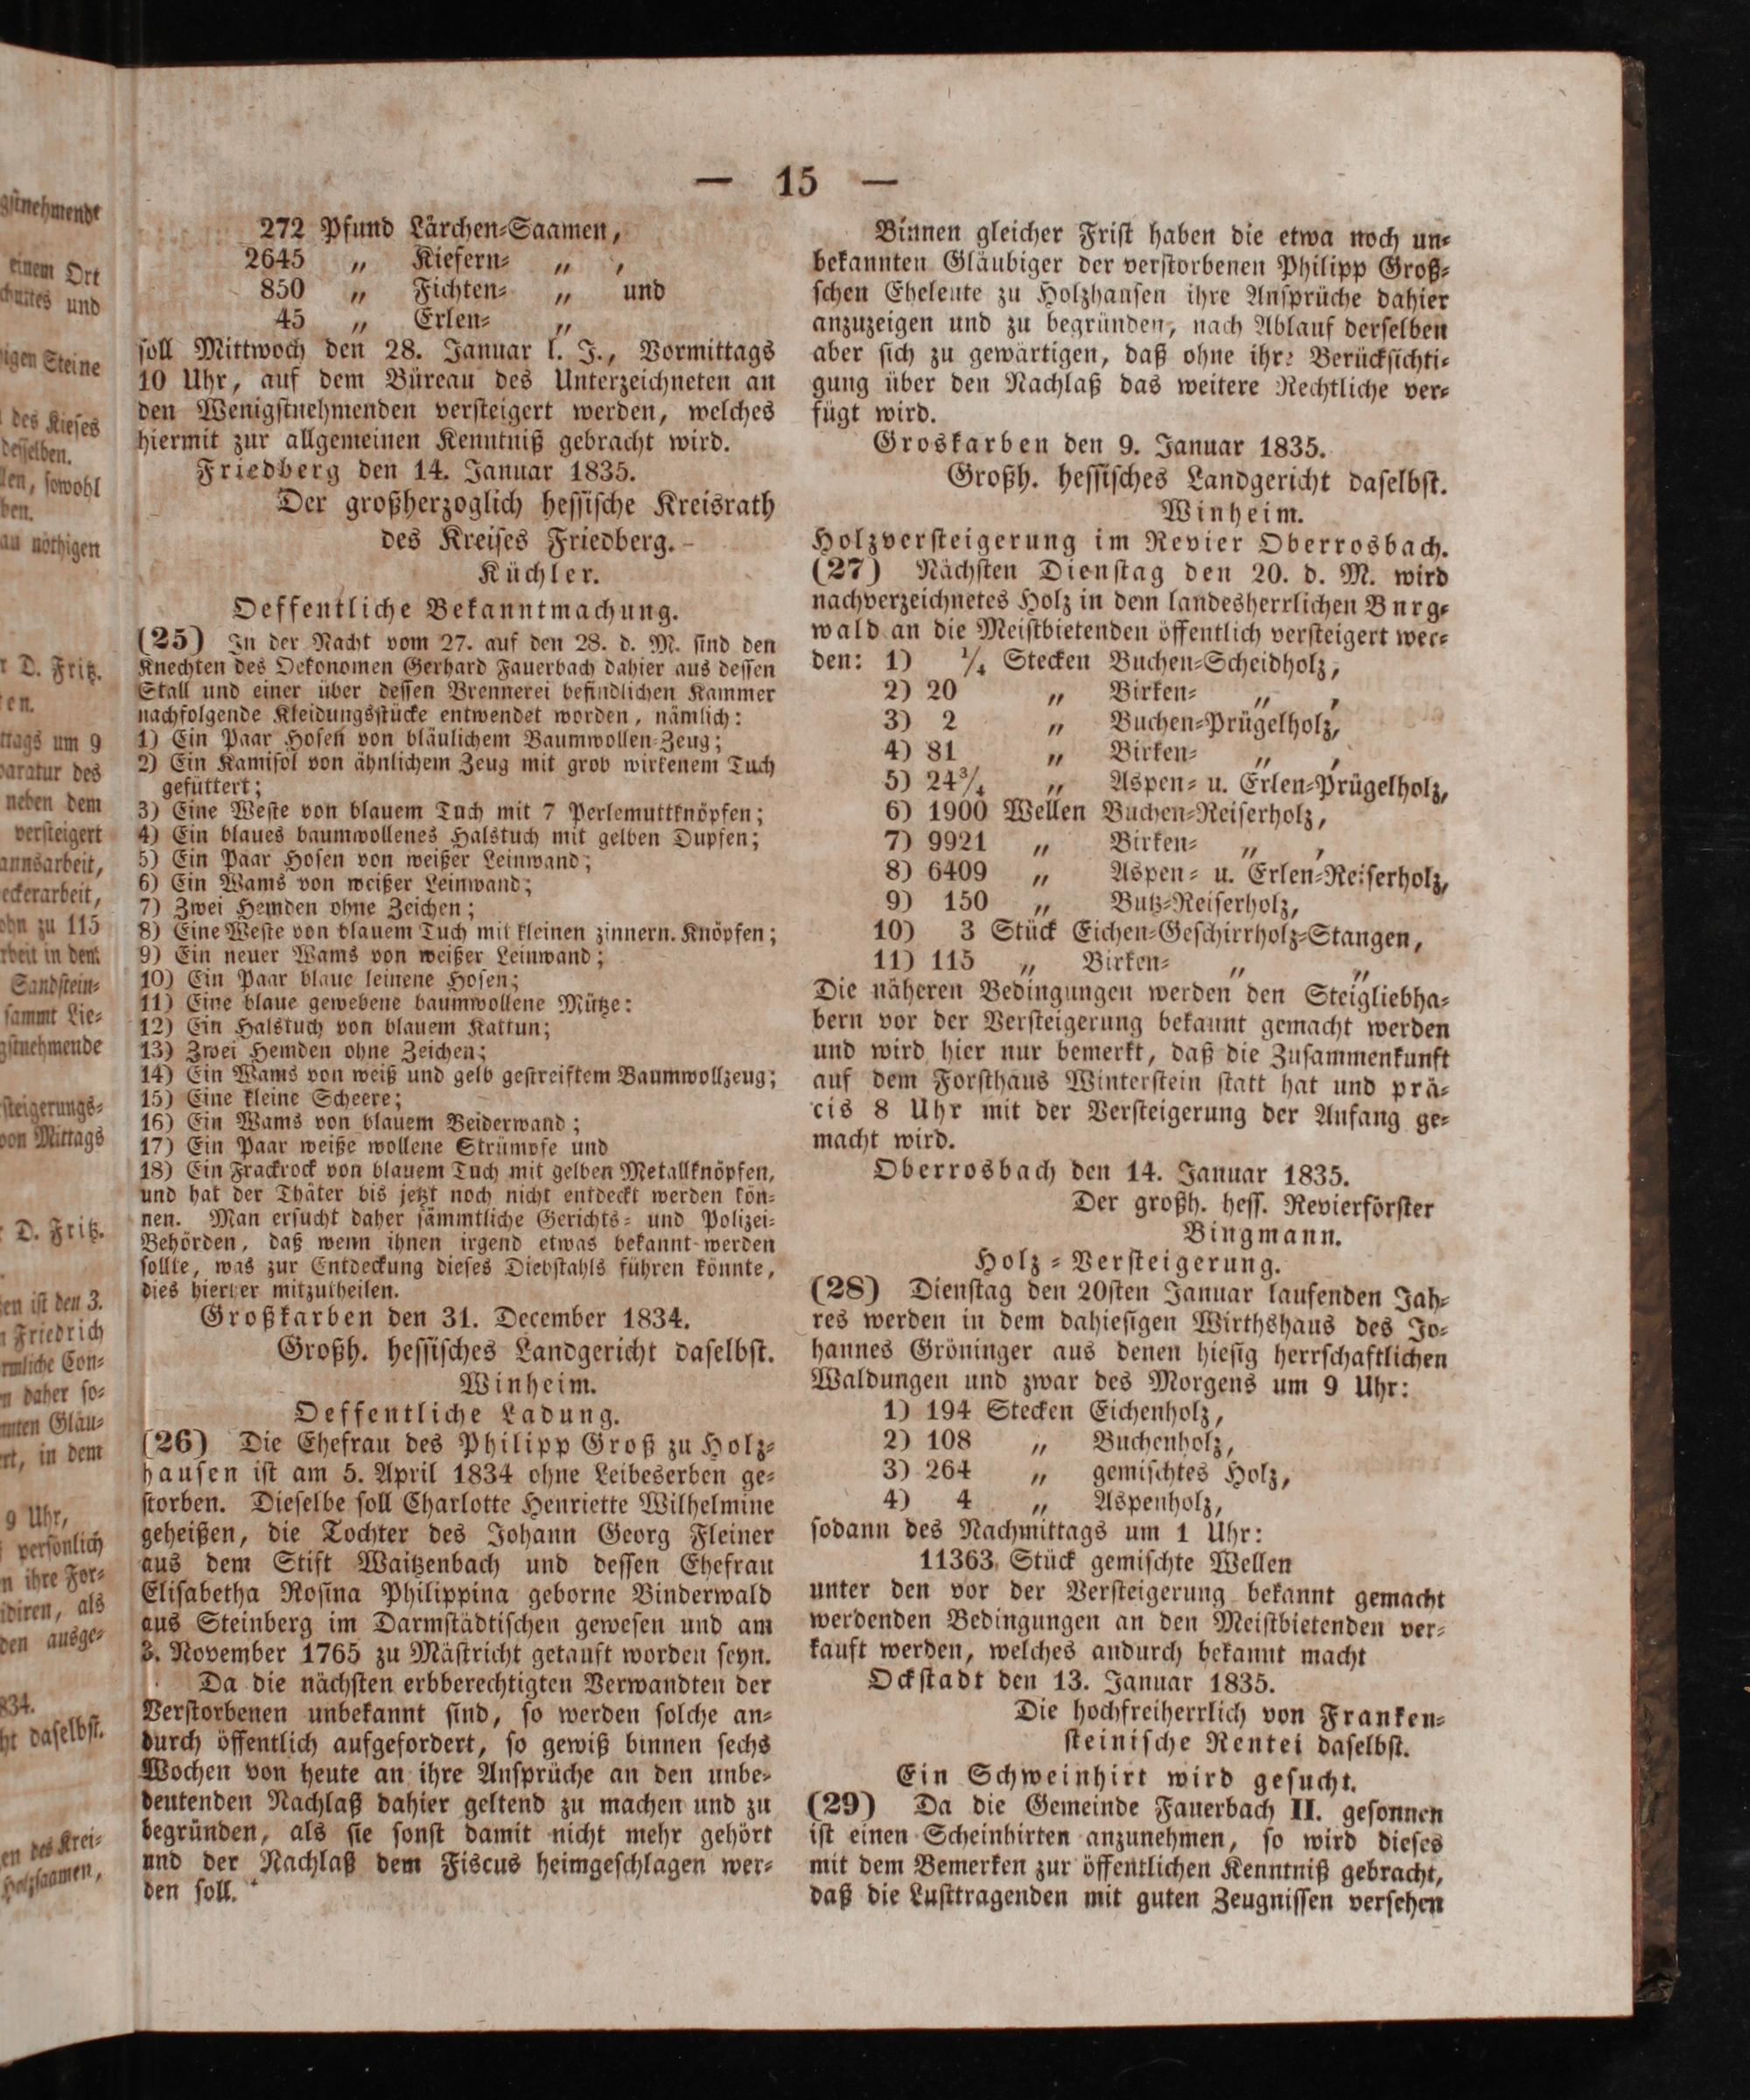 — 15 —
272 Pfund Lärchen-Saamen,
2645 „ Kiefern- „ ,
850 „ Fichten- „ und
45 „ Erlen- „
soll Mittwoch den 28. Januar l. J., Vormittags
10 Uhr, auf dem Büreau des Unterzeichneten an
den Wenigstnehmenden versteigert werden, welches
hiermit zur allgemeinen Kenntniß gebracht wird.
Friedberg den 14. Januar 1835.
Der großherzoglich hessische Kreisrath
des Kreises Friedberg.
Küchler.
Oeffentliche Bekanntmachung.
(25) In der Nacht vom 27. auf den 28. d. M. sind den
Knechten des Oekonomen Gerhard Fauerbach dahier aus dessen
Stall und einer über dessen Brennerei befindlichen Kammer
nachfolgende Kleidungsstücke entwendet worden, nämlich:
1) Ein Paar Hosen von bläulichem Baumwollen-Zeug;
2) Ein Kamisol von ähnlichem Zeug mit grob wirkenem Tuch
gefüttert;
3) Eine Weste von blauem Tuch mit 7 Perlemuttknöpfen;
4) Ein blaues baumwollenes Halstuch mit gelben Dupfen;
5) Ein Paar Hosen von weißer Leinwand;
6) Ein Wams von weißer Leinwand;
7) Zwei Hemden ohne Zeichen;
8) Eine Weste von blauem Tuch mit kleinen zinnern. Knöpfen;
9) Ein neuer Wams von weißer Leinwand;
10) Ein Paar blaue leinene Hosen;
11) Eine blaue gewebene baumwollene Mütze:
12) Ein Halstuch von blauem Kattun;
13) Zwei Hemden ohne Zeichen;
14) Ein Wams von weiß und gelb gestreiftem Baumwollzeug;
15) Eine kleine Scheere;
16) Ein Wams von blauem Beiderwand;
17) Ein Paar weiße wollene Strümpfe und
18) Ein Frackrock von blauem Tuch mit gelben Metallknöpfen,
und hat der Thäter bis jetzt noch nicht entdeckt werden kön-
nen. Man ersucht daher sämmtliche Gerichts- und Polizei-
Behörden, daß wenn ihnen irgend etwas bekannt werden
sollte, was zur Entdeckung dieses Diebstahls führen könnte,
dies hierher mitzutheilen.
Großkarben den 31. December 1834.
Großh. hessisches Landgericht daselbst.
Winheim.
Oeffentliche Ladung.
(26) Die Ehefrau des Philipp Groß zu Holz-
hausen ist am 5. April 1834 ohne Leibeserben ge-
storben. Dieselbe soll Charlotte Henriette Wilhelmine
geheißen, die Tochter des Johann Georg Fleiner
aus dem Stift Waitzenbach und dessen Ehefrau
Elisabetha Rosina Philippina geborne Binderwald
aus Steinberg im Darmstädtischen gewesen und am
3. November 1765 zu Mästricht getauft worden seyn.
Da die nächsten erbberechtigten Verwandten der
Verstorbenen unbekannt sind, so werden solche an-
durch öffentlich aufgefordert, so gewiß binnen sechs
Wochen von heute an ihre Ansprüche an den unbe-
deutenden Nachlaß dahier geltend zu machen und zu
begründen, als sie sonst damit nicht mehr gehört
und der Nachlaß dem Fiscus heimgeschlagen wer-
den soll.
Binnen gleicher Frist haben die etwa noch un-
bekannten Gläubiger der verstorbenen Philipp Groß-
schen Eheleute zu Holzhausen ihre Ansprüche dahier
anzuzeigen und zu begründen, nach Ablauf derselben
aber sich zu gewärtigen, daß ohne ihre Berücksichti-
gung über den Nachlaß das weitere Rechtliche ver-
fügt wird.
Groskarben den 9. Januar 1835.
Großh. hessisches Landgericht daselbst.
Winheim.
Holzversteigerung im Revier Oberrosbach.
(27) Nächsten Dienstag den 20. d. M. wird
nachverzeichnetes Holz in dem landesherrlichen Burg-
wald an die Meistbietenden öffentlich versteigert wer-
den: 1) ¼ Stecken Buchen-Scheidholz,
2) 20 „ Birken- „ ,
3) 2 „ Buchen-Prügelholz,
4) 81 „ Birken- „ ,
5) 24¾ „ Aspen- u. Erlen-Prügelholz,
6) 1900 Wellen Buchen-Reiserholz,
7) 9921 „ Birken- „ ,
8) 6409 „ Aspen- u. Erlen-Reiserholz,
9) 150 „ Butz-Reiserholz,
10) 3 Stück Eichen-Geschirrholz-Stangen,
11) 115 „ Birken- „ „
Die näheren Bedingungen werden den Steigliebha-
bern vor der Versteigerung bekannt gemacht werden
und wird hier nur bemerkt, daß die Zusammenkunft
auf dem Forsthaus Winterstein statt hat und prä-
cis 8 Uhr mit der Versteigerung der Anfang ge-
macht wird.
Oberrosbach den 14. Januar 1835.
Der großh. hess. Revierförster
Bingmann.
Holz-Versteigerung.
(28) Dienstag den 20sten Januar laufenden Jah-
res werden in dem dahiesigen Wirthshaus des Jo-
hannes Gröninger aus denen hiesig herrschaftlichen
Waldungen und zwar des Morgens um 9 Uhr:
1) 194 Stecken Eichenholz,
2) 108 „ Buchenholz,
3) 264 „ gemischtes Holz,
4) 4 „ Aspenholz,
sodann des Nachmittags um 1 Uhr:
11363 Stück gemischte Wellen
unter den vor der Versteigerung bekannt gemacht
werdenden Bedingungen an den Meistbietenden ver-
kauft werden, welches andurch bekannt macht
Ockstadt den 13. Januar 1835.
Die hochfreiherrlich von Franken-
steinische Rentei daselbst.
Ein Schweinhirt wird gesucht.
(29) Da die Gemeinde Fauerbach II. gesonnen
ist einen Scheinhirten anzunehmen, so wird dieses
mit dem Bemerken zur öffentlichen Kenntniß gebracht,
daß die Lusttragenden mit guten Zeugnissen versehen